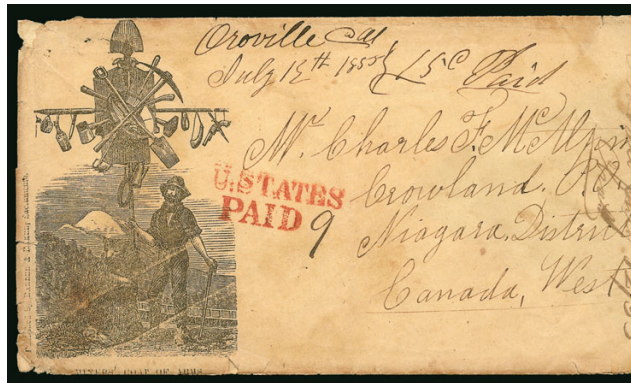 Oroville Cal
July 15th 1858 15c Paid
Mr. Charles F. McAlpin
Crowland. P.
Niagara. Distri
Canada, West
U.STATES
PAID
9
MINERS' COAT OF ARMS.